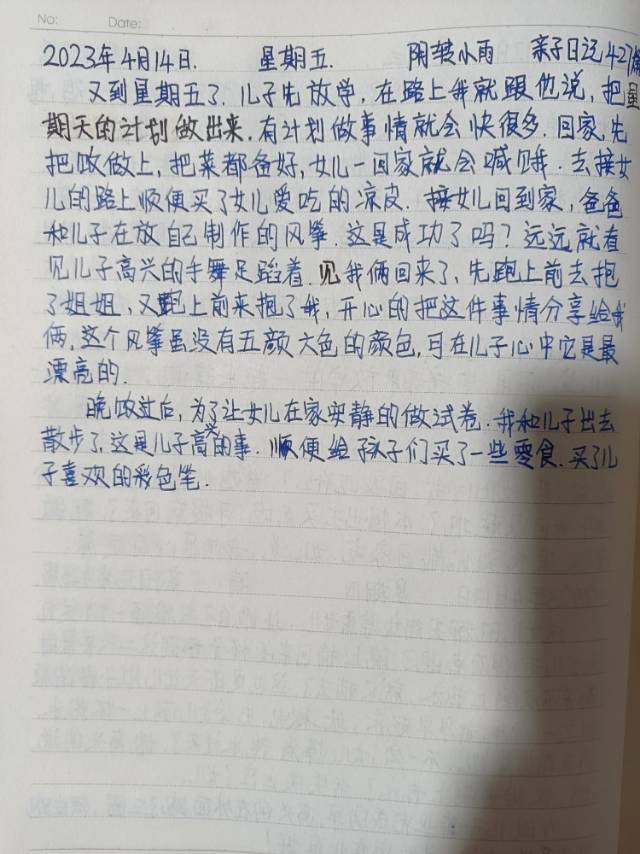 No: Date:
2023年4月14日. 星期五. 阴转小雨 亲子日记427篇
又到星期五了.儿子先放学,在路上我就跟他说,把星
期天的计划做出来.有计划做事情就会快很多.回家,先
把饭做上,把菜都备好,女儿一回家就会喊饿.去接女
儿的路上顺便买了女儿爱吃的凉皮.接女儿回到家,爸爸
和儿子在放自己制作的风筝.这是成功了吗?远远就有
见儿子高兴的手舞足蹈着.见我俩回来了,先跑上前去抱
了姐姐,又跑上前来抱了我,开心的把这件事情分享给我
俩.这个风筝虽没有五颜六色的颜色,可在儿子心中它是最
漂亮的.
晚饭过后,为了让女儿在家安静的做试卷.我和儿子出去
散步了.这是儿子高兴的事.顺便给孩子们买了一些零食.买了儿
子喜欢的彩色笔.